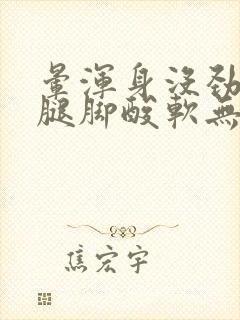 暈渾身沒勁
腿腳酸軟無
焦宏宇